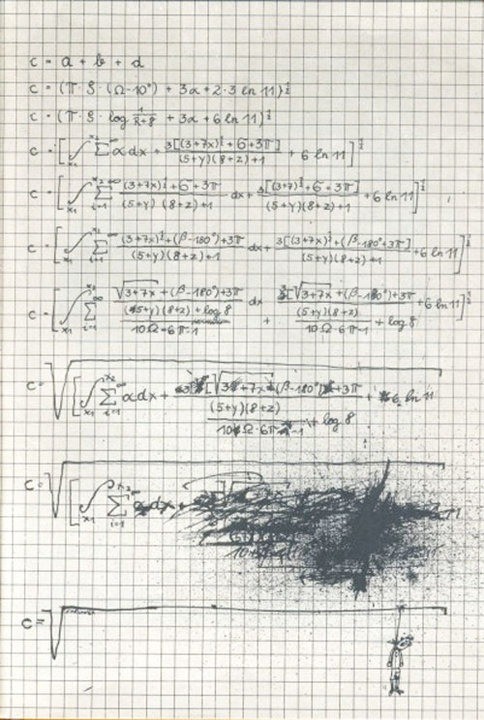 c = a + b + d
c = (π · S · (Ω-10°) + 3α + 2·3 ln 11)^½
c = (π · S · log 1/(R+8) + 3α + 6 ln 11)^½
c = [∫x₁^x₂ Σ^∞ α dx + 3[(3+7x)^½+6+3π]/((5+y)(8+z)+1) + 6 ln 11]^½
c = [∫x₁^x₂ Σi=1^∞ ((3+7x)^½+6+3π)/((5+y)(8+z)+1) dx + 3[(3+7)^½+6+3π]/((5+y)(8+z)+1) + 6 ln 11]^½
c = [∫x₁^x₂ Σi=1^∞ ((3+7x)^½+(β-180°)+3π)/((5+y)(8+z)+1) dx + 3[(3+7x)^½+(β-180°)+3π]/((5+y)(8+z)+1) + 6 ln 11]^½
c = [∫x₁^x₂ Σi=1^∞ (√3+7x + (β-180°)+3π)/((5+y)(8+z)+log 8)/(10Ω·6π-1) dx + 3[√3+7x + (β-180°)+3π]/((5+y)(8+z))/(10Ω·6π-1) + log 8 + 6 ln 11]^½
c = √[∫x₁^x₂ Σi=1^∞ α dx + 3[√3+7x + (β-180°)]+3π/((5+y)(8+z))/(10Ω·6π-1) + log 8 + 6 ln 11
c = √[∫x₁^x₂ Σi=1^∞ dx +
c = √